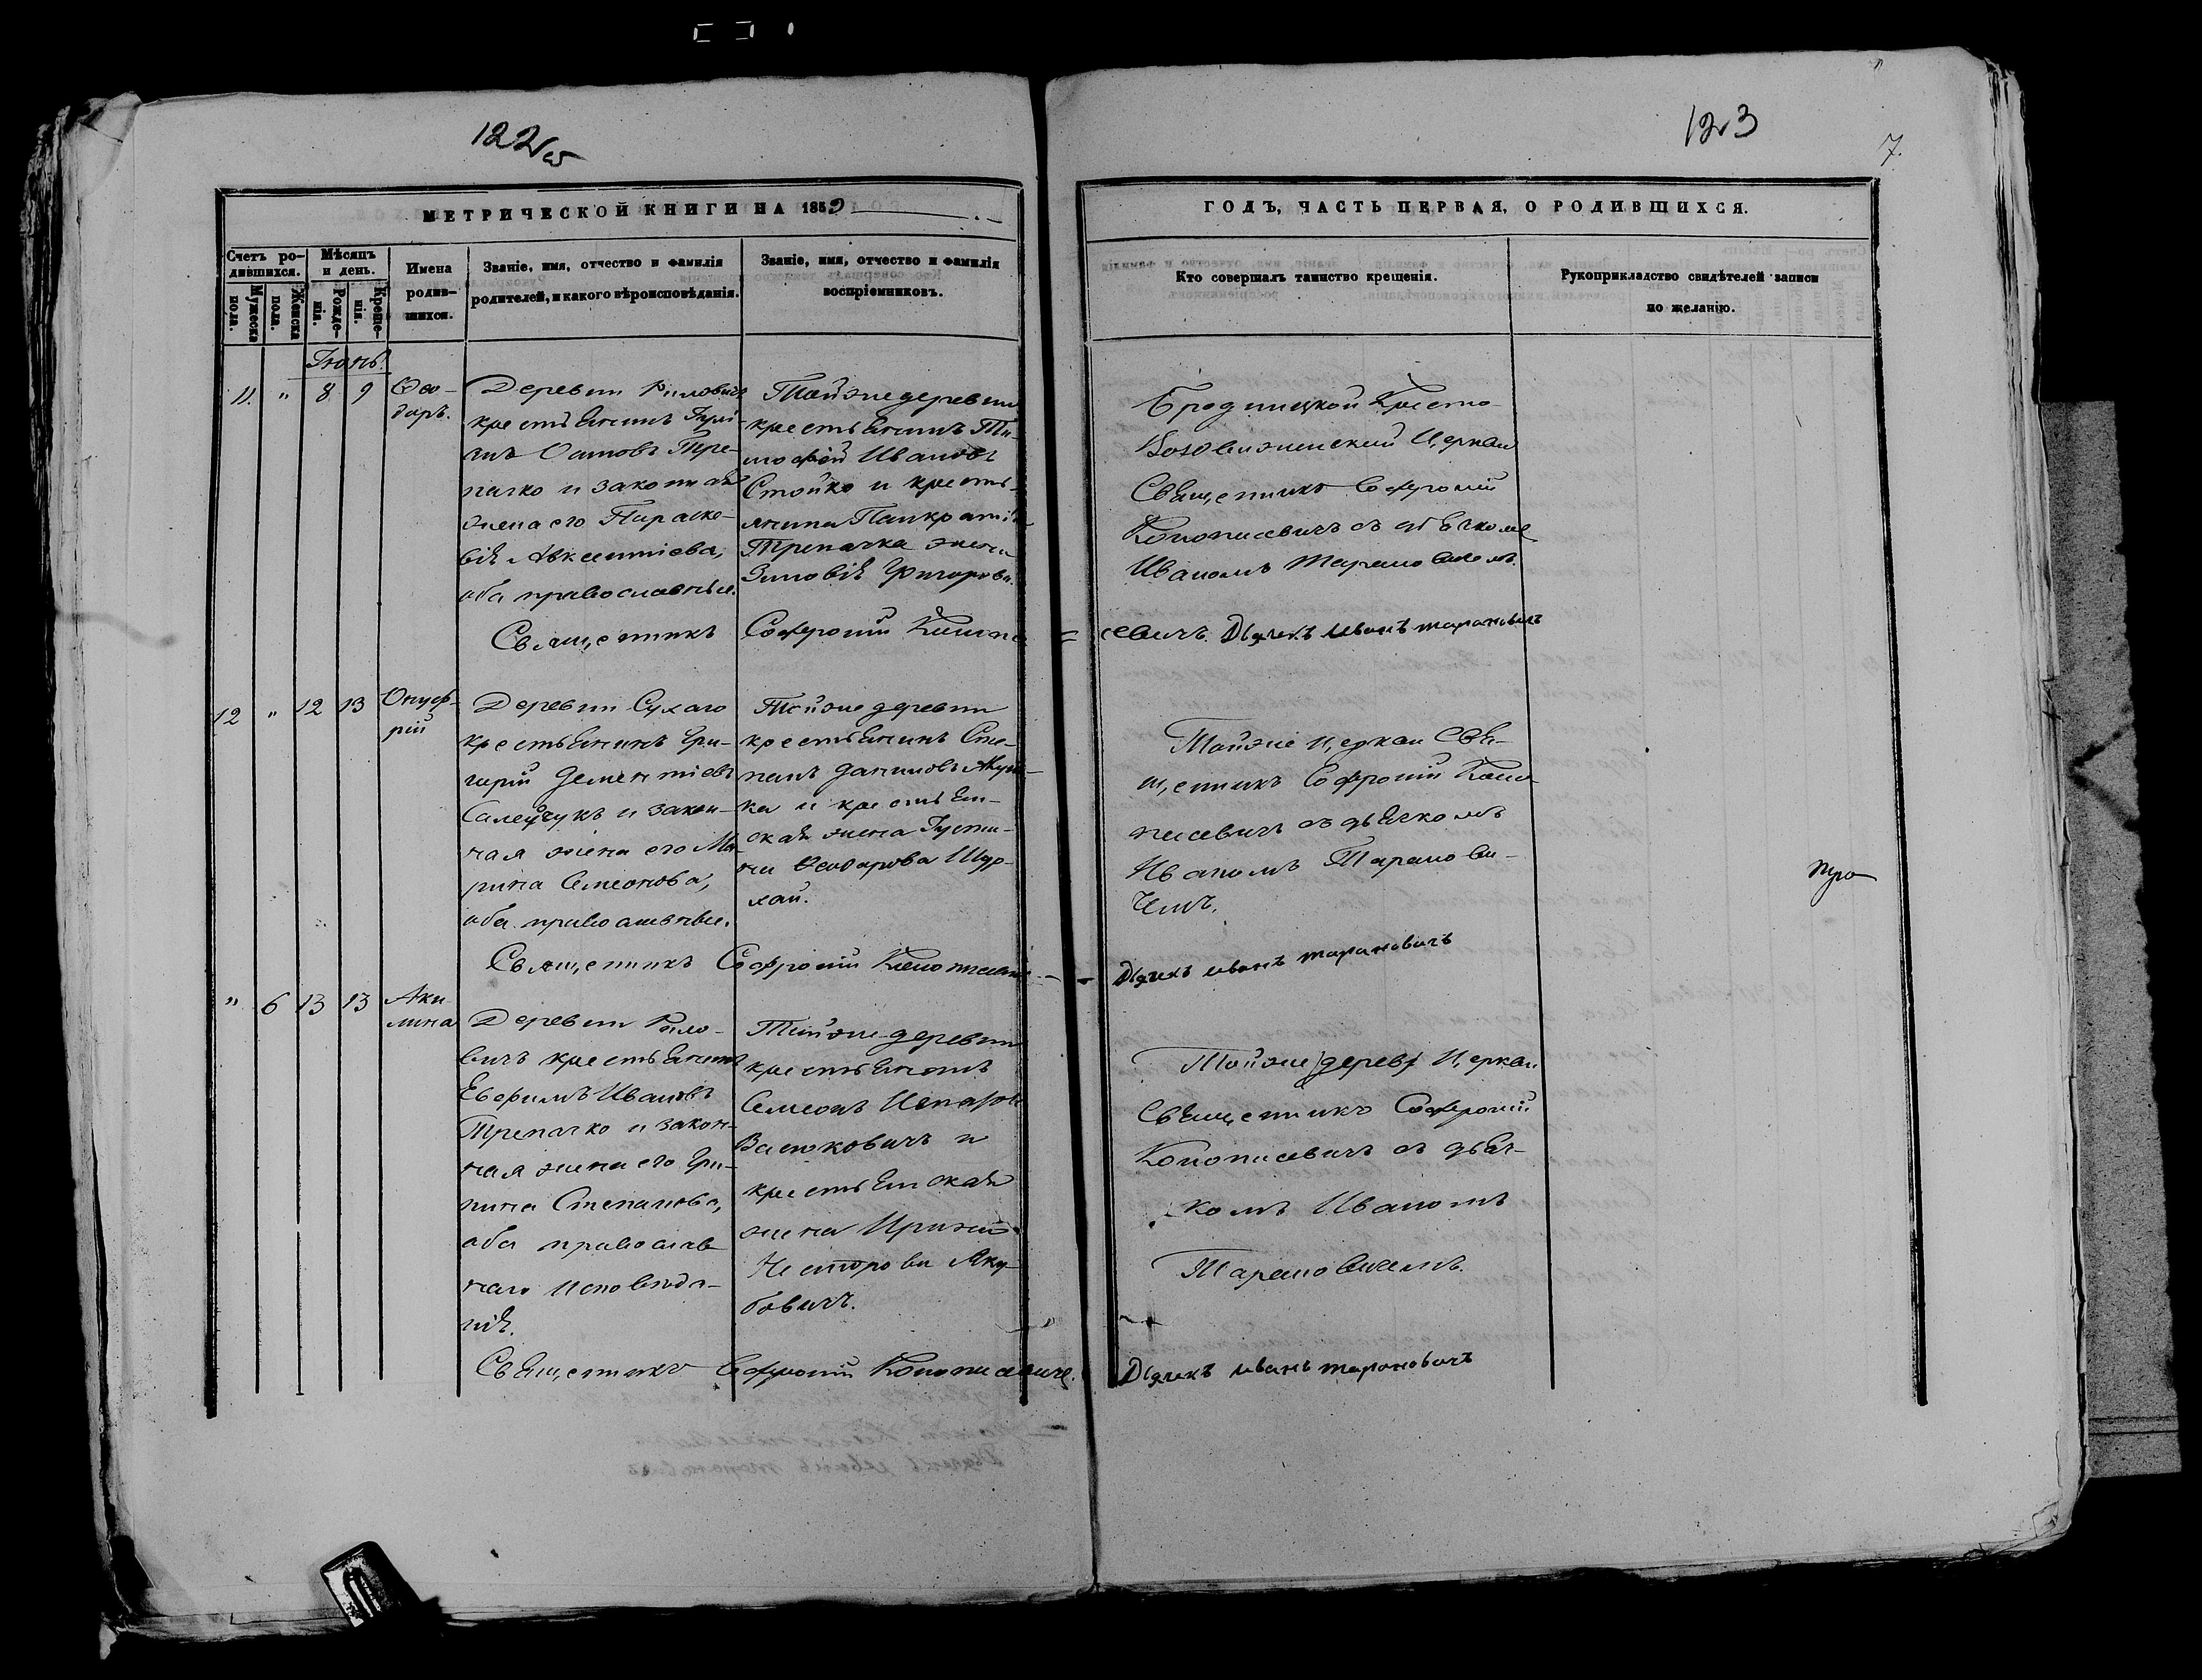 122 об
123
7.
МЕТРИЧЕСКОЙ КНИГИ НА 1859
ГОДЪ, ЧАСТЬ ПЕРВАЯ, О РОДИВШИХСЯ.
Счетъ родившихся.
Мужеска пола.
Женска пола.
Мѣсяцъ и день.
Рожденія.
Крещенія.
Имена родившихся.
Званіе, имя, отчество и фамилія
родителей, и какого вѣроисповѣданія.
Званіе, имя, отчество и фамилія
воспріемниковъ.
Кто совершалъ таинство крещенія.
Рукоприкладство свидѣтелей записи
по желанію.
Іюнь.
11. " 8 9
Ѳео-
доръ.
Деревни
крестьянинъ
и законная
жена его Параске-
вія Авксентіева,
оба православные.
Тойже деревни
крестьянинъ Ти-
мофей Ивановъ
Стойко и кресть-
янина
Трепачка жена
Зиновія Григорова.
Кресто-
Воздвиженской Церкви
Священникъ Софроній
Конопасевичъ съ дьячкомъ
Иваномъ Тарановичемъ.
Священникъ Софроній Конопа=
севичъ. Дьячекъ Иванъ Тарановичъ
12 " 12 13
Онуф-
рій
Деревни Сухаго
крестьянинъ Гри-
горій Дементіевъ
и закон-
ная жена его Ма-
рина Семеонова,
оба православные.
Тойже деревни
крестьянинъ Сте-
панъ Даниловъ
и крестьян-
ская жена Густи-
на Ѳеодорова
Тойже Церкви Свя-
щенникъ Софроній Коно-
пасевичъ съ дьячкомъ
Иваномъ Таранови-
чемъ.
Священникъ Софроній Конопасевичъ
Дьячекъ Иванъ Тарановичъ
" 6 13 13
Аки-
лина
Деревни
вичъ крестьянинъ
Евфимъ Ивановъ
Трепачко и закон-
ная жена его Гри-
пина Степанова,
оба православ
наго исповѣда-
нія.
Тойже деревни
крестьянинъ
Семеонъ
и
крестьянская
жена
Несторова Яку-
бовичъ.
Тойже дерев Церкви
Священникъ Софроній
Конопасевичъ съ дьяч-
комъ Иваномъ
Тарановичемъ.
Священникъ Софроній Конопасевичъ.
Дьячекъ Иванъ Тарановичъ